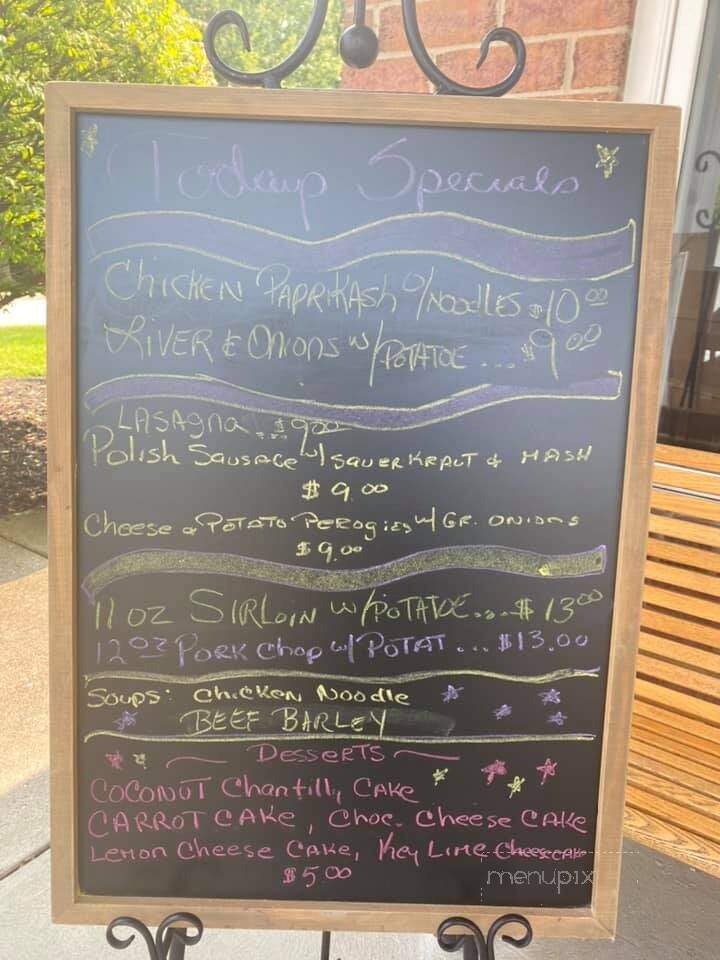 Today Specials
CHICKEN PAPRIKASH O/NOODLES $10.00
LIVER & ONIONS W/POTATOE ... $9.00
LASAGNA ... $9.00
Polish Sausage w/ SAUERKRAUT & MASH
$9.00
Cheese & POTATO PEROGIES w/ GR. ONIONS
$9.00
11 OZ SIRLOIN W/POTATOE... $13.00
12 OZ PORK Chop w/ POTAT ... $13.00
Soups: Chicken Noodle
BEEF BARLEY
DESSERTS
COCONUT Chantilly CAKE
CARROT CAKE, Choc. Cheese CAKE
Lemon Cheese CAKE, Key Lime Cheesecake
$5.00
menupix